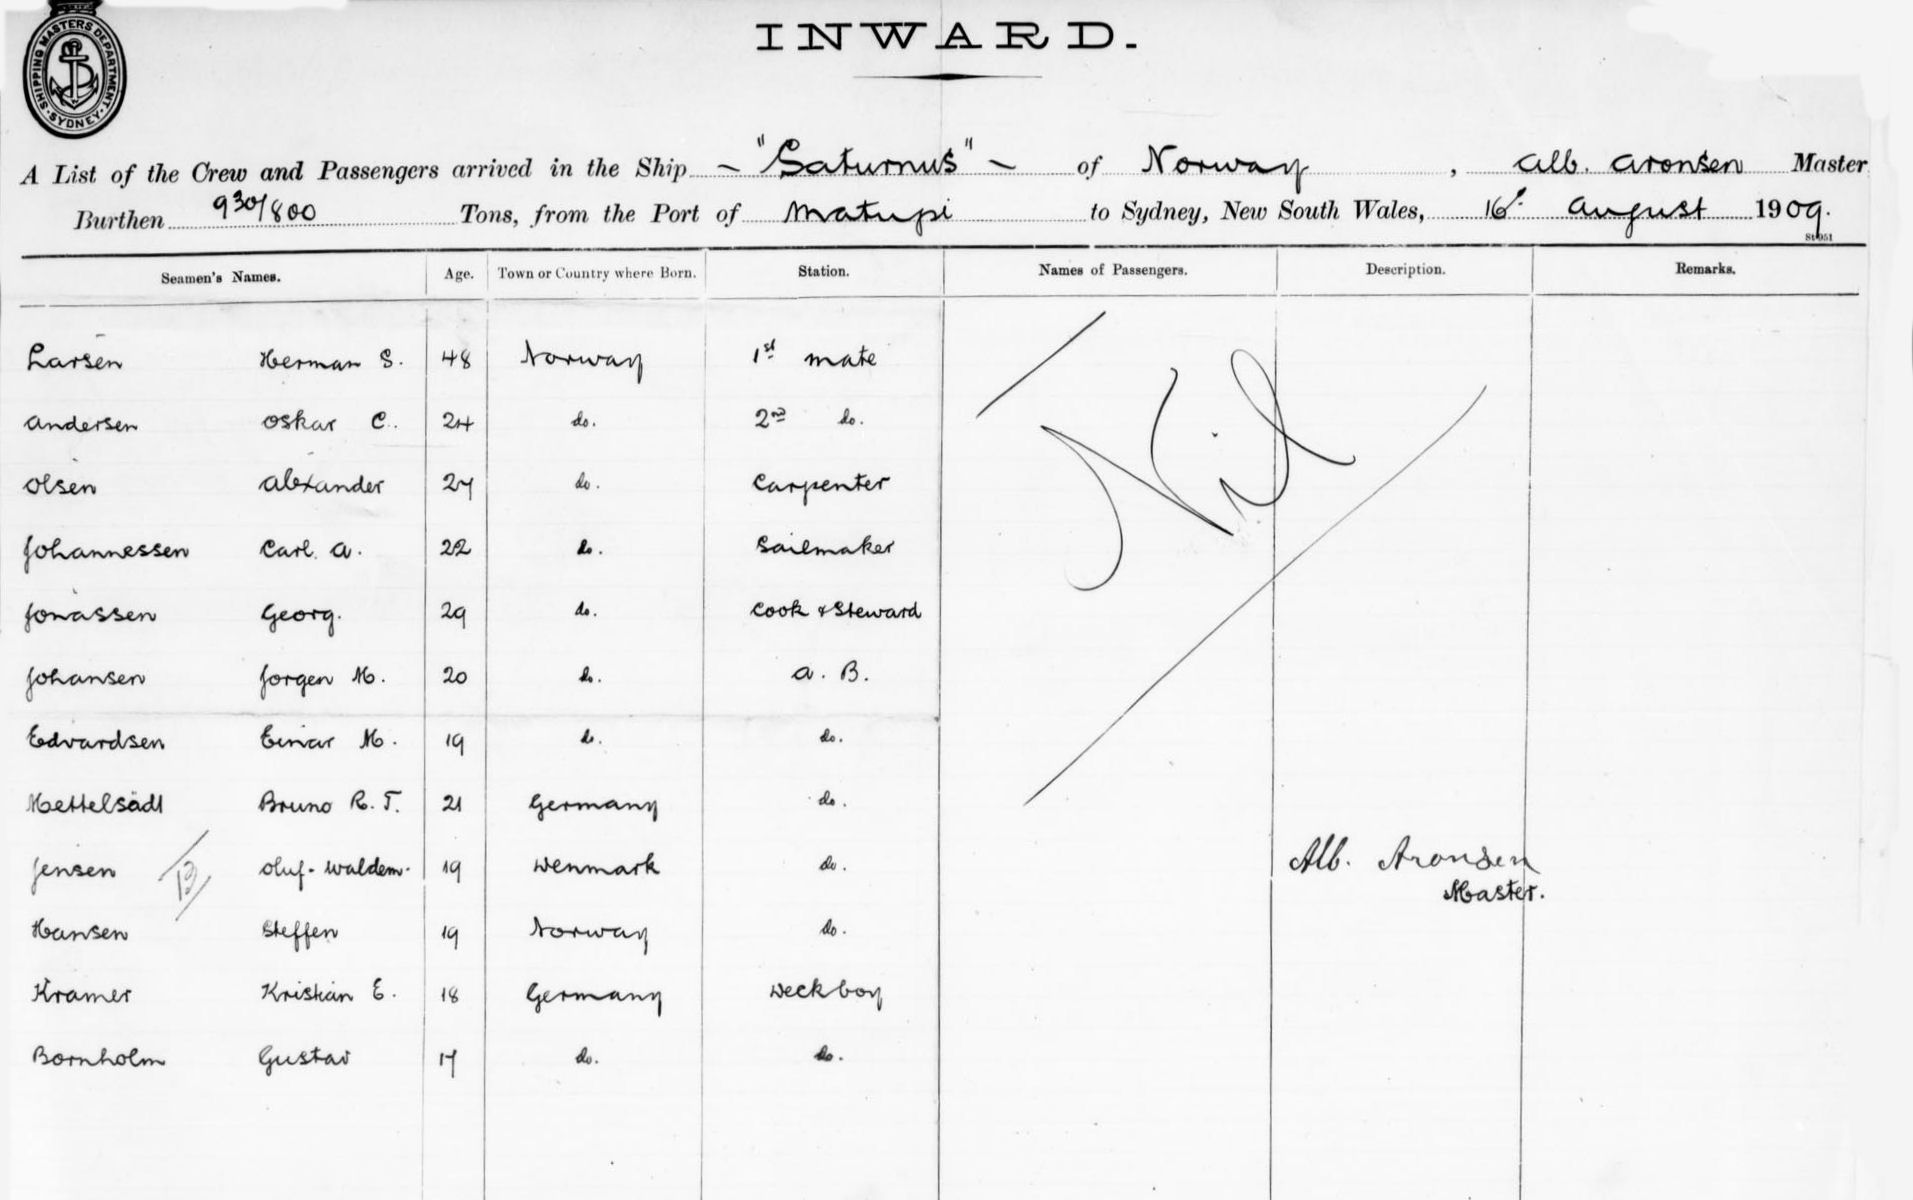 SHIPPING MASTERS DEPARTMENT · SYDNEY ·
INWARD.
A List of the Crew and Passengers arrived in the Ship "Saturnus" of Norway, Alb. Aronsen Master
Burthen 930/800 Tons, from the Port of Matupi to Sydney, New South Wales, 16 August 1909.
Seamen's Names. Age. Town or Country where Born. Station. Names of Passengers. Description. Remarks.
Larsen Herman S. 48 Norway 1st mate
Andersen Oskar C. 24 do. 2nd do.
Olsen Alexander 27 do. Carpenter
Nil
Johannessen Carl. A. 22 do. Sailmaker
Jonassen Georg. 29 do. Cook & Steward
Johansen Jorgen M. 20 do. A. B.
Edvardsen Einar M. 19 do. do.
Bruno R. T. 21 Germany do.
Jensen Oluf-Waldem. 19 Denmark do.
Alb. Aronsen
Master.
13
Hansen Steffen 19 Norway do.
Kramer Kristian E. 18 Germany Deckboy
Bornholm Gustav 17 do. do.